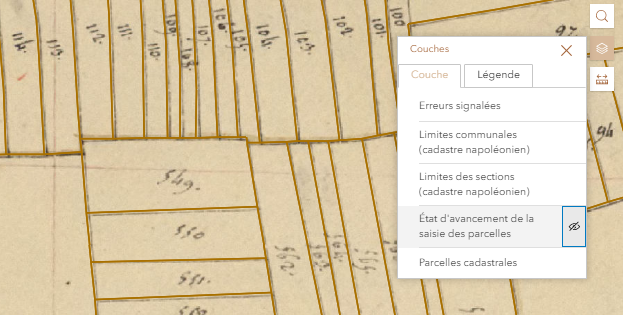 114.
113.
112.
111.
110.
109.
108.
107.
106.
105.
104.
103.
102.
101.
100.
97.
94
549.
550
551.
562.
563.
564.
565.
Couches
Couche
Légende
Erreurs signalées
Limites communales
(cadastre napoléonien)
Limites des sections
(cadastre napoléonien)
État d'avancement de la
saisie des parcelles
Parcelles cadastrales